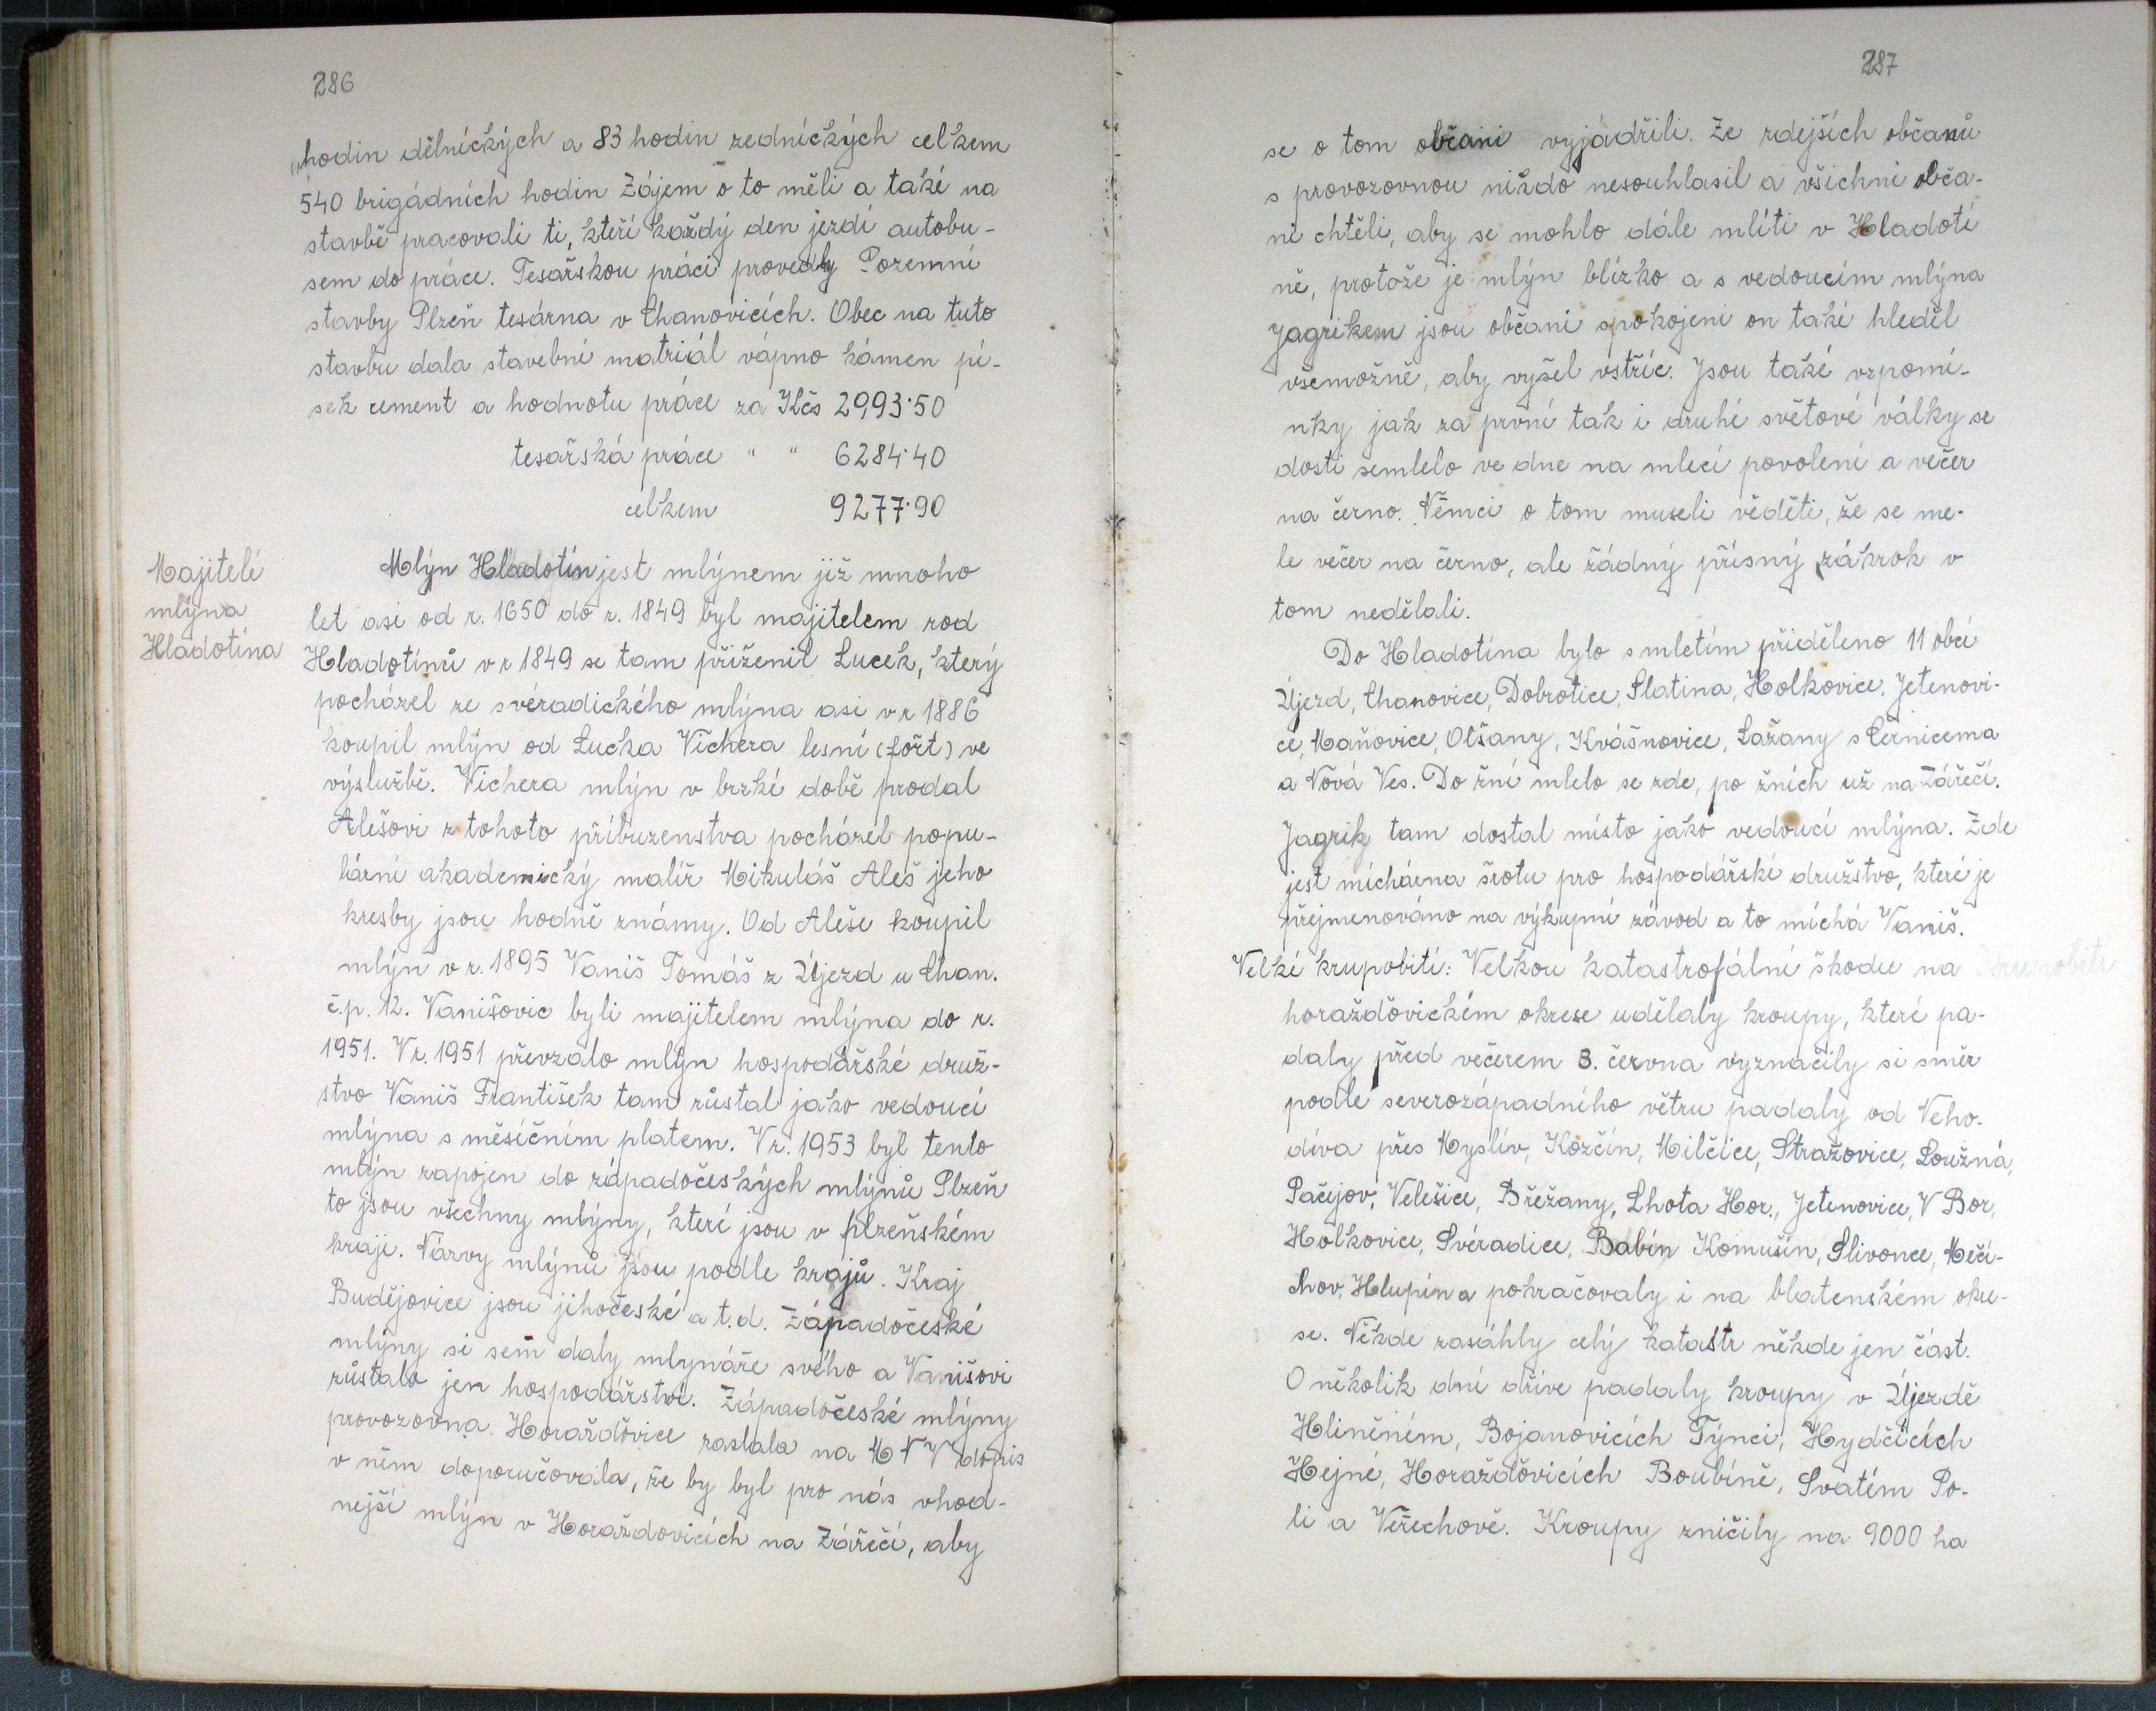 286
hodin dělnických a 83 hodin zednických celkem
540 brigádních hodin Zájem o to měli a také na
stavbě pracovali ti, kteří každý den jezdí autobu-
sem do práce. Tesařskou práci provedly Pozemní
stavby Plzeň tesárna v Chanovicích. Obec na tuto
stavbu dala stavební matriál vápno kámen pí-
sek cement a hodnotu práce za Kčs 2993·50
tesařská práce " " 6284·40
celkem 9277·90
Majitelé
mlýna
Hladotína
Mlýn Hladotín jest mlýnem již mnoho
let asi od r. 1650 do r. 1849 byl majitelem rod
Hladotínů v r 1849 se tam přiženil Lucek, který
pocházel ze svéradického mlýna asi v r 1886
koupil mlýn od Lucka Vichera lesní (fořt) ve
výslužbě. Vichera mlýn v brzké době prodal
Alešovi z tohoto příbuzenstva pocházel popu-
lární akademický malíř Mikuláš Aleš jeho
kresby jsou hodně známy. Od Aleše koupil
mlýn v r. 1895 Vaniš Tomáš z Újezd u Chan.
č.p. 12. Vanišovic byli majitelem mlýna do r.
1951. V r. 1951 převzalo mlýn hospodářské druž-
stvo Vaniš František tam zůstal jako vedoucí
mlýna s měsíčním platem. V r. 1953 byl tento
mlýn zapojen do západočeských mlýnů Plzeň
to jsou všechny mlýny, které jsou v plzeňském
kraji. Názvy mlýnů jsou podle krajů. Kraj
Budějovice jsou jihočeské a t.d. Západočeské
mlýny si sem daly mlynáře svého a Vanišovi
zůstalo jen hospodářství. Západočeské mlýny
provozovna Horažďovice zaslala na MNV dopis
v něm doporučovala, že by byl pro nás vhod-
nejší mlýn v Horažďovicích na Zářečí, aby
287
se o tom občani vyjádřili. Ze zdejších občanů
s provozovnou nikdo nesouhlasil a všichni obča-
ni chtěli, aby se mohlo dále mlíti v Hladotí
ně, protože je mlýn blízko a s vedoucím mlýna
Jagrikem jsou občani spokojeni on také hleděl
všemožně, aby vyšel vstříc. Jsou také vzpomí-
nky jak za první tak i druhé světové války se
dosti semlelo ve dne na mlecí povolení a večer
na černo. Němci o tom museli věděti, že se me-
le večer na černo, ale žádný přísný zákrok v
tom nedělali.
Do Hladotína bylo s mletím přiděleno 11 obcí
Újezd, Chanovice, Dobrotice, Slatina, Holkovice, Jetenovi-
ce, Maňovice, Olšany, Kvášnovice, Lažany s Černicema
a Nová Ves. Do žní mlelo se zde, po žních už na Zářečí.
Jagrik tam dostal místo jako vedoucí mlýna. Zde
jest míchárna šrotu pro hospodářské družstvo, které je
přejmenováno na výkupní závod a to míchá Vaniš.
Velké krupobití: Velkou katastrofální škodu na Krupobití
horažďovickém okrese udělaly kroupy, které pa-
daly před večerem 3. června vyznačily si směr
podlé severozápadního větru padaly od Neho-
díva přes Myslív, Kozčín, Milčice, Stražovice, Loužná,
Pačejov, Velešice, Břežany, Lhota Hor., Jetenovice, V Bor,
Holkovice, Svéradice, Babín Komušín, Slivonce, Mečí-
chov, Hlupín a pokračovaly i na blatenském okre-
se. Někde zasáhly celý katastr někde jen část.
O několik dní dříve padaly kroupy v Újezdě
Hliněném, Bojanovicích Týnci, Hydčicích
Hejné, Horažďovicích Boubíně, Svatém Po-
li a Veřechově. Kroupy zničily na 9000 ha